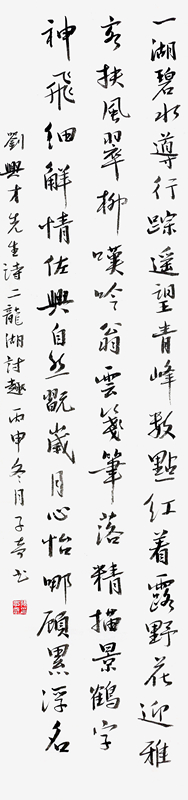 一湖碧水導行踪遥望青峰数點红着露野花迎雅
客扶風翠柳嘆吟翁雲箋筆落精描景鶴字
神飛細解情佐興自然翫歲月心怡哪顧累浮名
劉興才先生詩二龍湖討趣丙申冬月子奇书